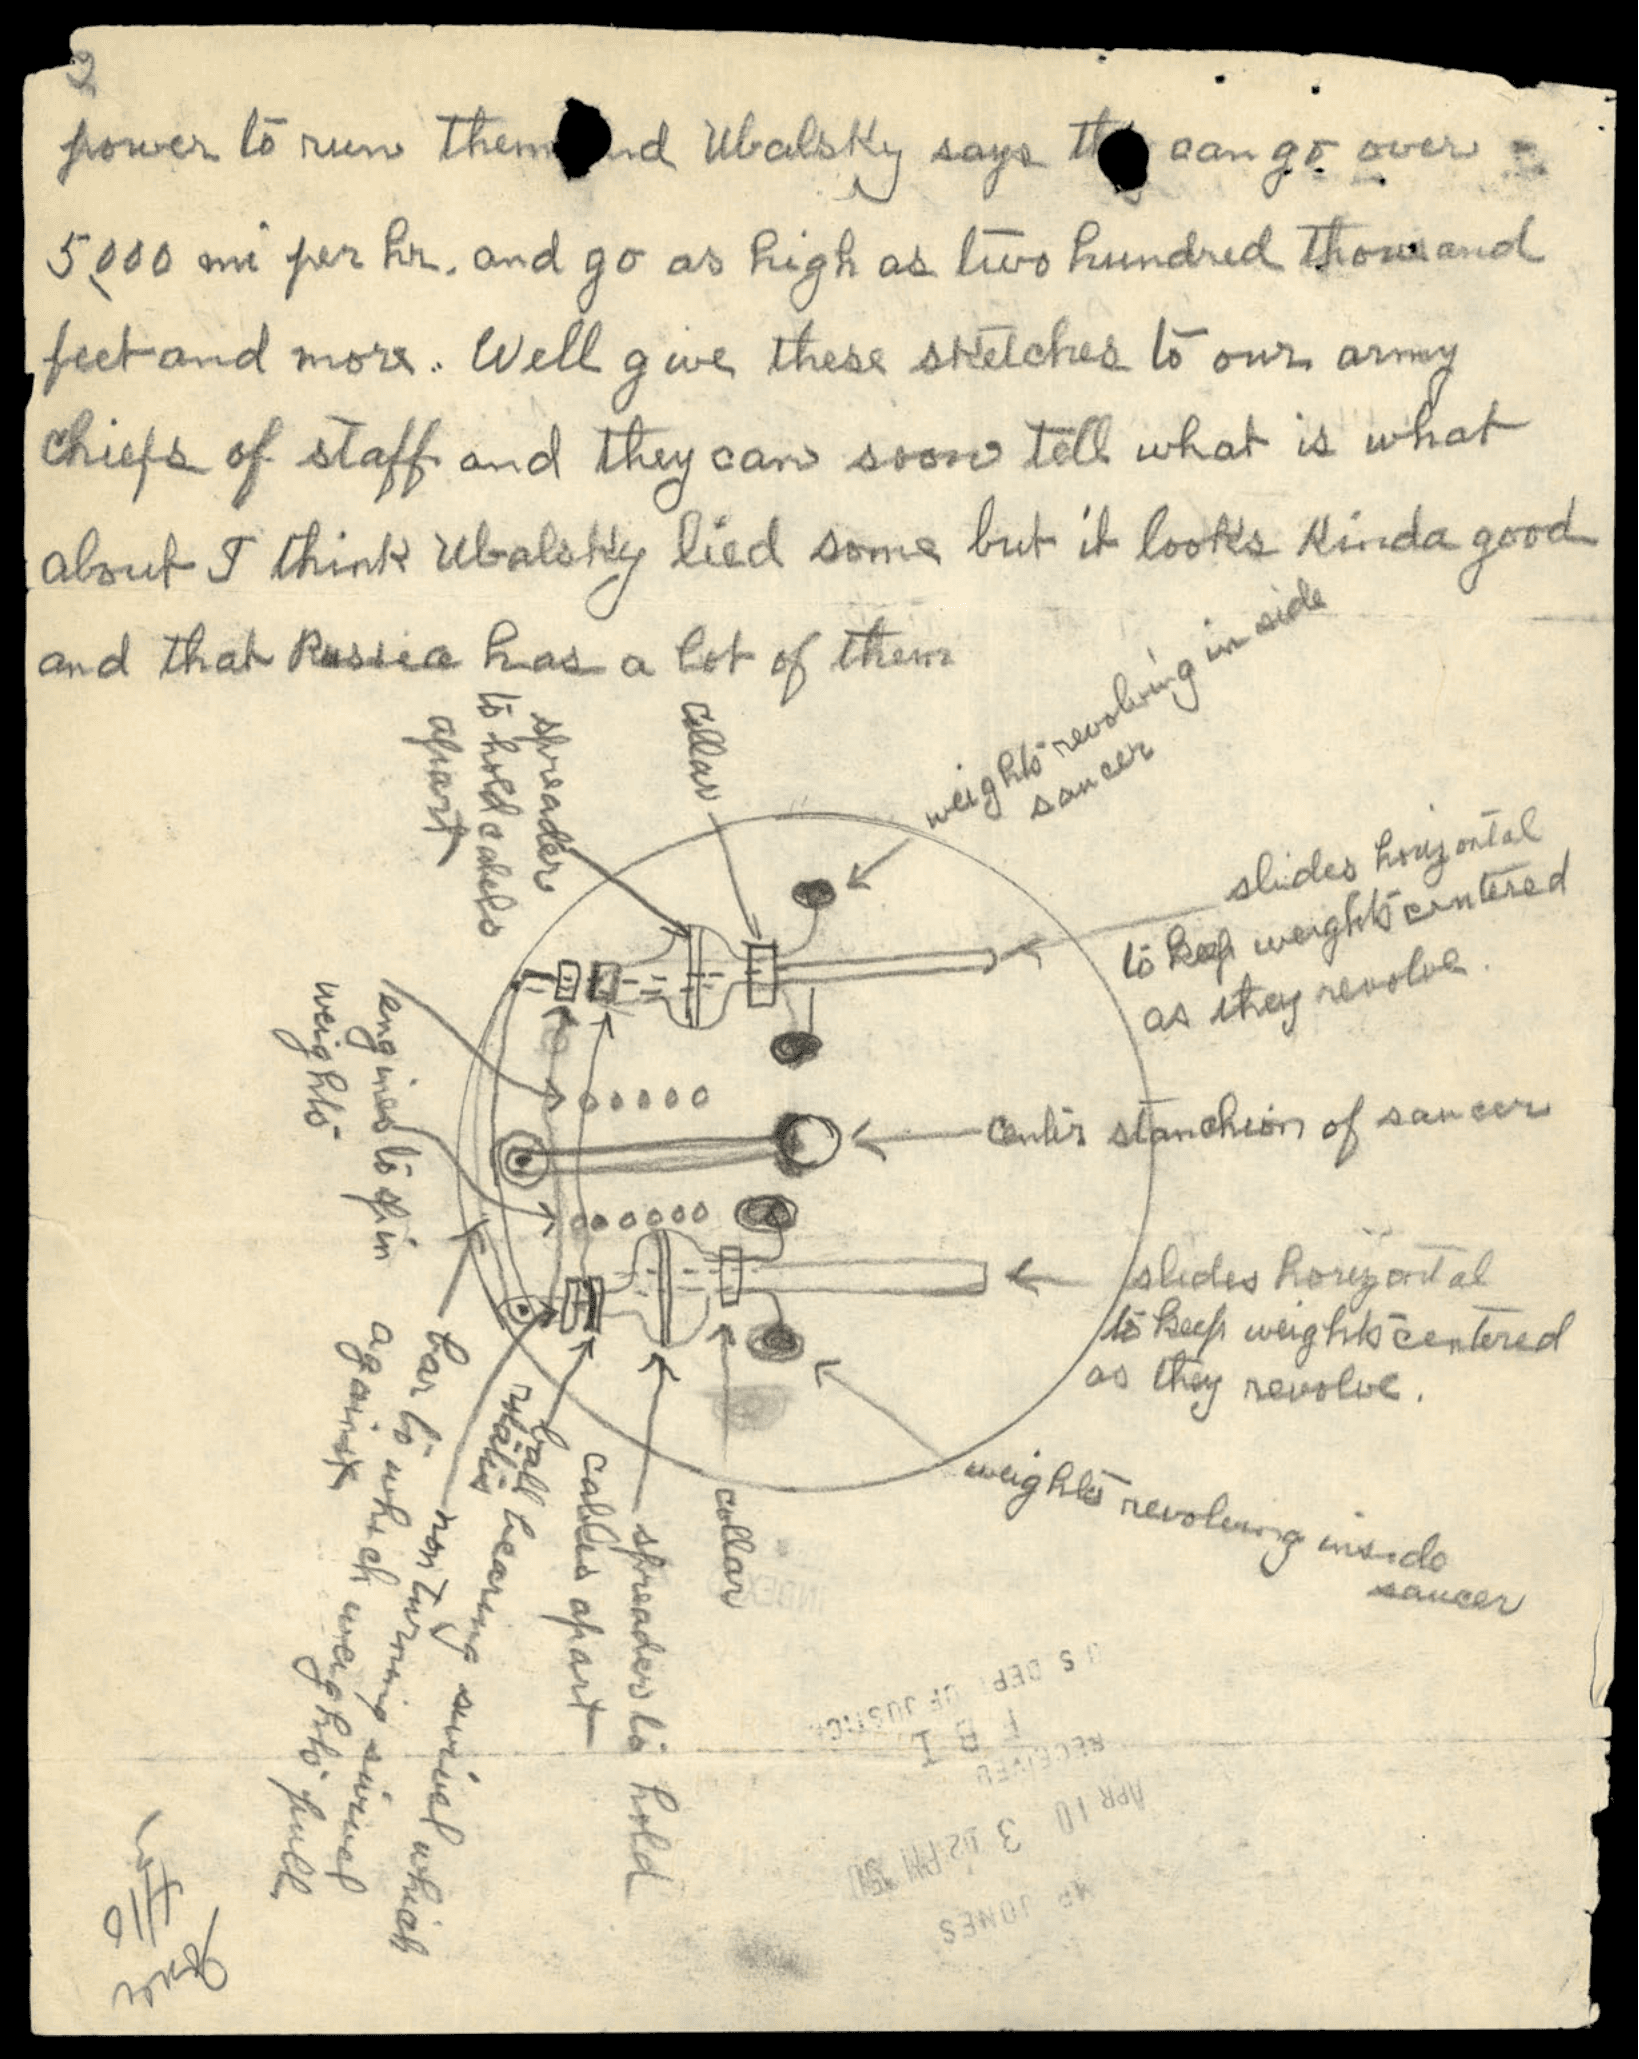 2
power to run them and Ubalsky says they can go over
5,000 mi per hr. and go as high as two hundred thousand
feet and more. Well give these sketches to our army
chiefs of staff and they can soon tell what is what
about I think Ubalsky lied some but it looks kinda good
and that Russia has a lot of them
spreader
to hold cabels
apart
collar
weights revolving in side
saucer
slides horizontal
to keep weights centered
as they revolve.
engines to spin
weights
center stanchion of saucer
slides horizontal
to keep weights centered
as they revolve.
weights revolving inside
saucer
collar
spreaders to hold
cables apart
ball bearing swivel which
rotates
non turning swivel
bar to which weights pull
against
INDEX
U S DEPT OF JUSTICE
F B I
RECEIVED
APR 10 3 02 PM
MR JONES